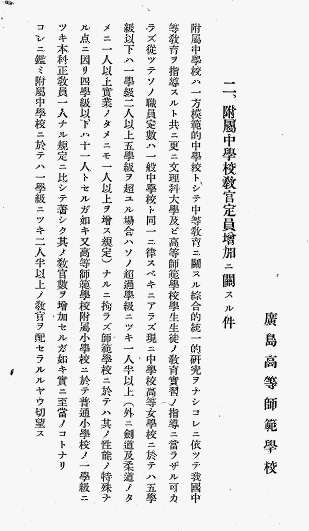 二、附屬中學校敎官定員增加ニ關スル件
廣島高等師範學校
附屬中學校ハ一方模範的中學校トシテ中等敎育ニ關スル綜合的統一的硏究ヲナシコレニ依ツテ我國中
等敎育ヲ指導スルト共ニ更ニ文理科大學及ビ高等師範學校學生生徒ノ敎育實習ノ指導ニ當ラザル可カ
ラズ從ツテソノ職員定數ハ一般中學校ト同一ニ律スベキニアラズ現ニ中學校高等女學校ニ於テハ五學
級以下ハ一學級二人以上五學級ヲ超ユル場合ハソノ超過學級ニツキ一人半以上(外ニ劍道及柔道ノタ
メニ一人以上實業ノタメニモ一人以上ヲ增ス規定)ナルニ拘ラズ師範學校ニ於テハ其ノ性能ノ特殊ナ
ル點ニ因リ四學級以下ハ十一人トセルガ如キ又高等師範學校附屬小學校ニ於テ普通小學校ノ一學級ニ
ツキ本科正敎員一人ナル規定ニ比シテ著シク其ノ敎官數ヲ增加セルガ如キ實ニ至當ノコトナリ
コレニ鑑ミ附屬中學校ニ於テハ一學級ニツキ二人半以上ノ敎官ヲ配セラルルヤウ切望ス